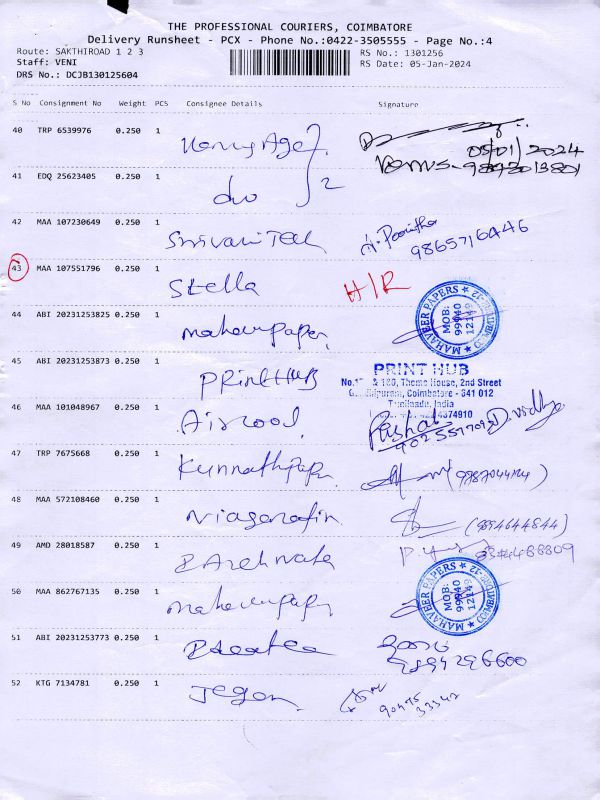 THE PROFESSIONAL COURIERS, COIMBATORE
Delivery Runsheet - PCX - Phone No.:0422-3505555 - Page No.:4
Route: SAKTHIROAD 1 2 3 RS No.: 1301256
Staff: VENI RS Date: 05-Jan-2024
DRS No.: DCJB130125604
S No Consignment No Weight PCS Consignee Details Signature
40 TRP 6539976 0.250 1
05/01/2024
41 EDQ 25623405 0.250 1 do 2
42 MAA 107230649 0.250 1 Srivari Tech
9865716446
43 MAA 107551796 0.250 1 Stella H/R
44 ABI 20231253825 0.250 1 mahaveer paper
MAHAVEER PAPERS ★ COIMBATORE-12 ★
MOB:
99940
12149
45 ABI 20231253873 0.250 1 PRintHUB
PRINT HUB
& 180, Theme House, 2nd Street
Coimbatore - 641 012
Tamilnadu, India
46 MAA 101048967 0.250 1 Aircool
47 TRP 7675668 0.250 1
48 MAA 572108460 0.250 1 (9894644844)
49 AMD 28018587 0.250 1
50 MAA 862767135 0.250 1 mahaveer paper
MAHAVEER PAPERS ★ COIMBATORE-12 ★
MOB:
99940
12149
51 ABI 20231253773 0.250 1
9894296600
52 KTG 7134781 0.250 1 Jegan
90475
33342